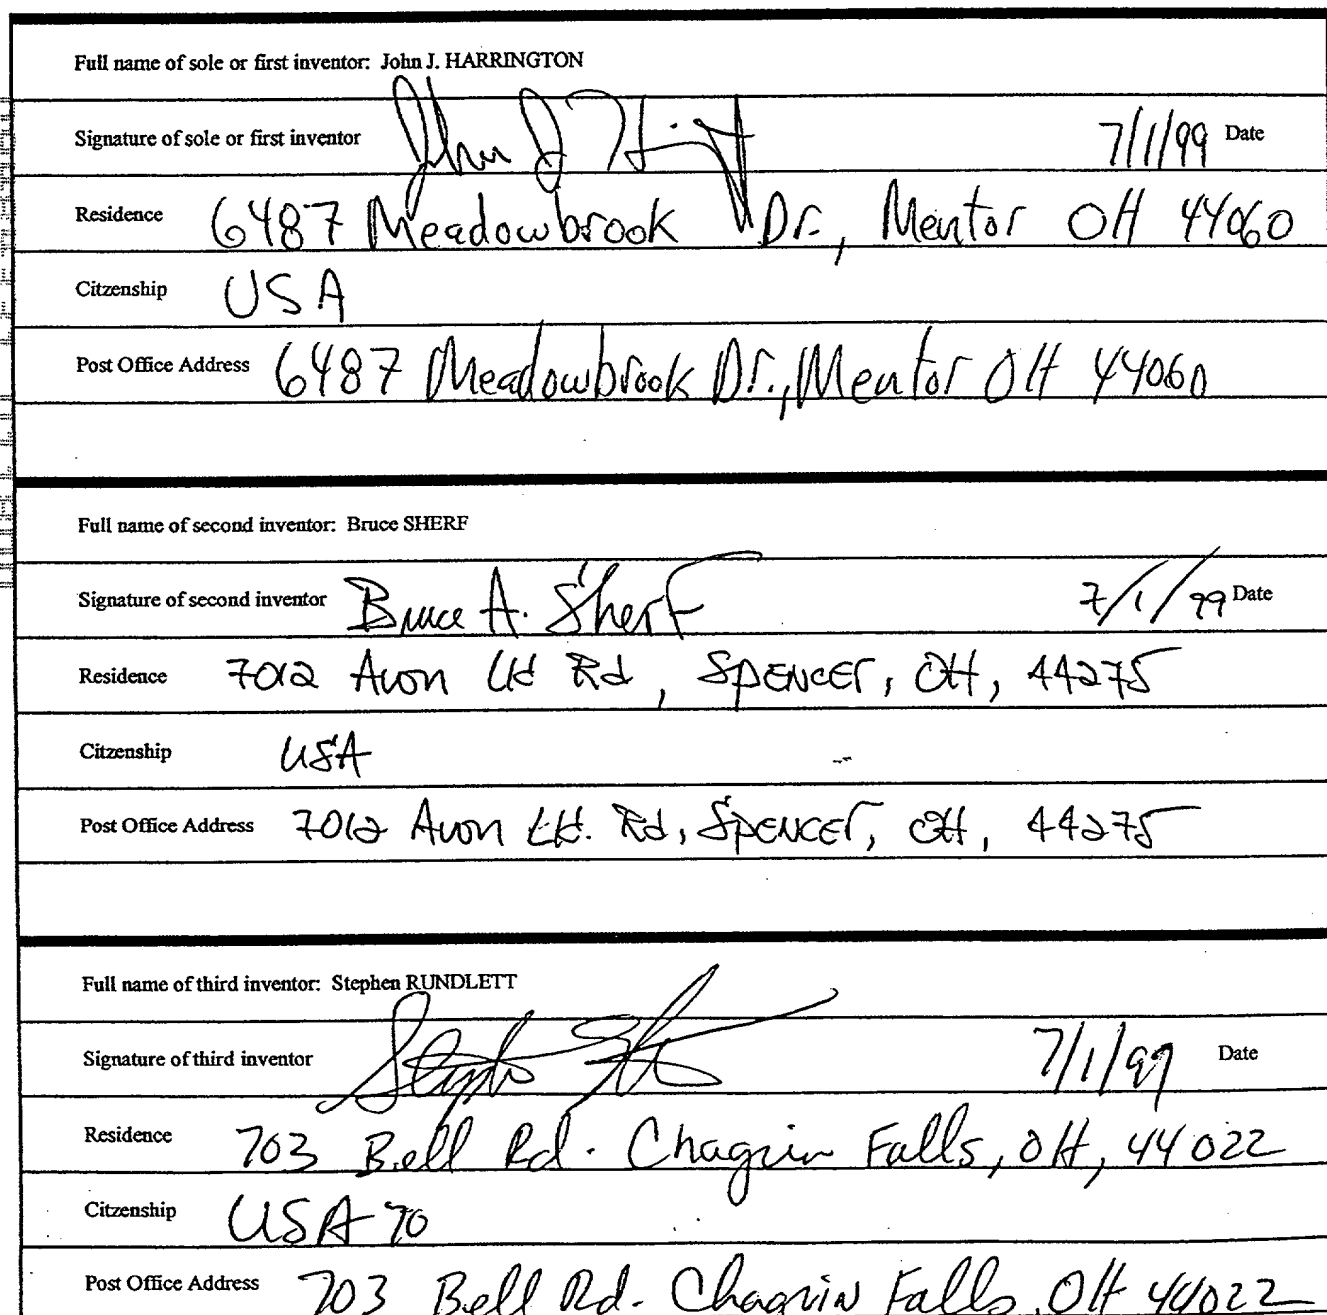 Full name of sole or first inventor: John J. HARRINGTON
Signature of sole or first inventor John J 7/1/99 Date
Residence 6487 Meadowbrook Dr., Mentor OH 44060
Citzenship USA
Post Office Address 6487 Meadowbrook Dr., Mentor OH 44060
Full name of second inventor: Bruce SHERF
Signature of second inventor Bruce A. Sherf 7/1/99 Date
Residence 7012 Avon Rd, SPENCEr, OH, 44275
Citzenship USA
Post Office Address 7012 Avon Rd, SPENCEr, OH, 44275
Full name of third inventor: Stephen RUNDLETT
Signature of third inventor 7/1/99 Date
Residence 703 Bell Rd. Chagrin Falls, OH, 44022
Citzenship USA 70
Post Office Address 703 Bell Rd. Chagrin Falls, OH 44022